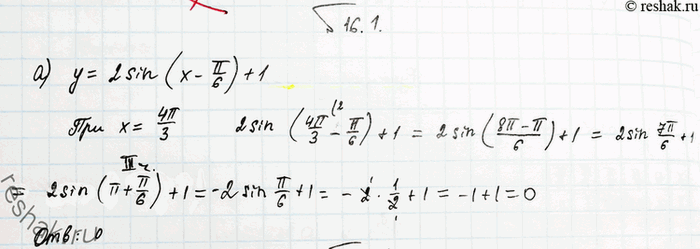 © reshak.ru
16.1.
а) y = 2 sin (x - π/6) + 1
При x = 4π/3 2 sin (4π/3 (2 - π/6) + 1 = 2 sin (8π - π/6) + 1 = 2 sin 7π/6 + 1
III ч.
2 sin (π + π/6) + 1 = -2 sin π/6 + 1 = - 2 · 1/2 + 1 = -1 + 1 = 0
Ответ: 0
reshak